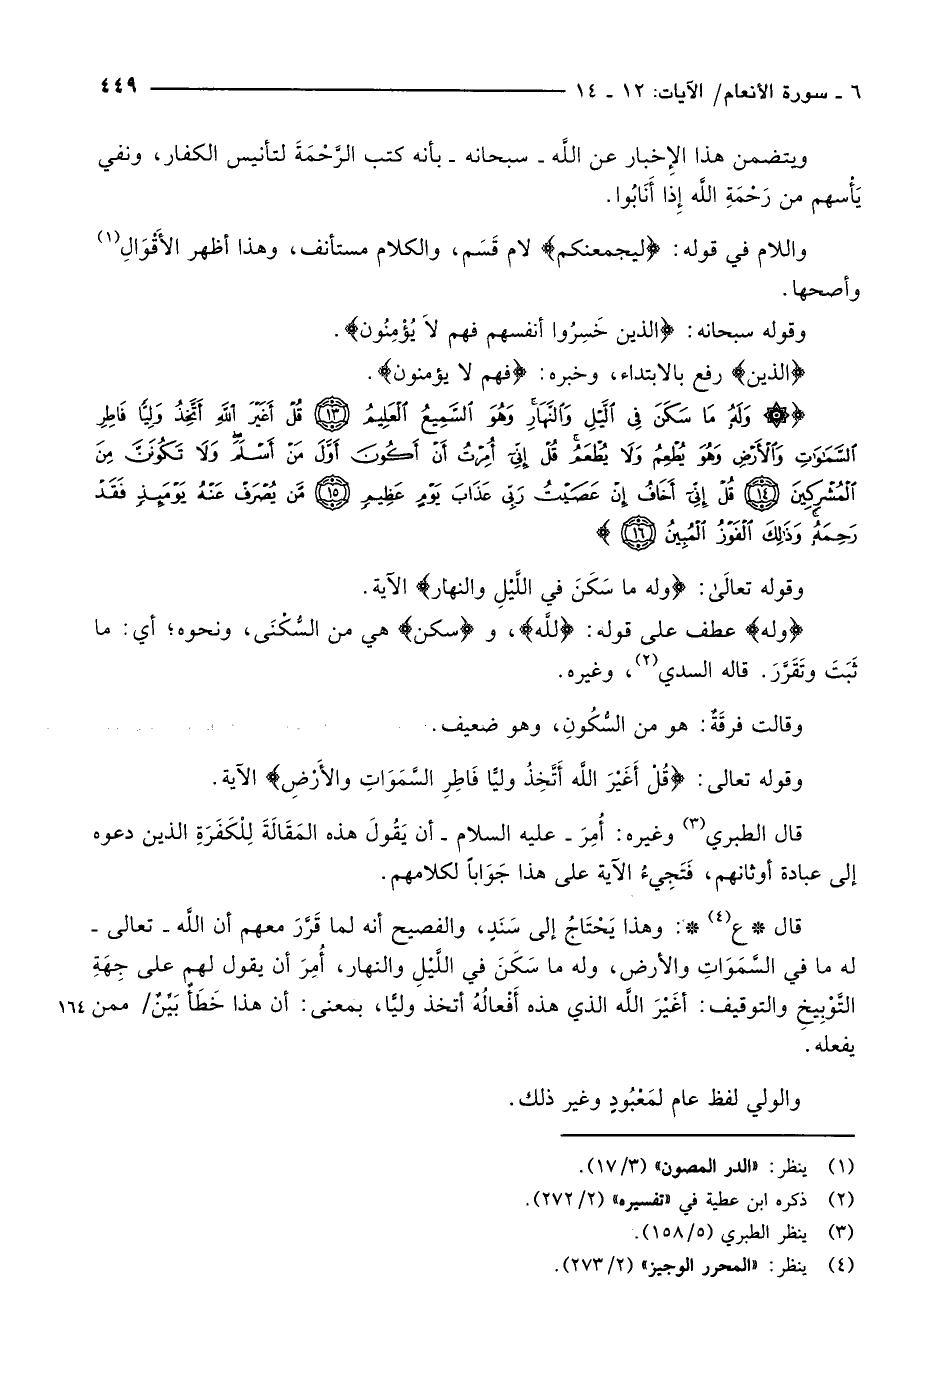 ٦ ـ سورة الأنعام/ الآيات: ١٢ ـ ١٤ ٤٤٩
ويتضمن هذا الإِخبار عن اللَّه ـ سبحانه ـ بأنه كتب الرَّحْمَةَ لتأنيس الكفار، ونفي
يَأْسهم من رَحْمَةِ اللَّه إِذا أَنَابُوا.
واللام في قوله: ﴿ليجمعنكم﴾ لام قَسَم، والكلام مستأنف، وهذا أظهر الأَقْوَالِ(١)
وأصحها.
وقوله سبحانه: ﴿الذين خَسِرُوا أنفسهم فهم لاَ يُؤْمِنُون﴾.
﴿الذين﴾ رفع بالابتداء، وخبره: ﴿فهم لا يؤمنون﴾.
﴿۞ وَلَهُ مَا سَكَنَ فِي ٱلَّيْلِ وَٱلنَّهَارِۚ وَهُوَ ٱلسَّمِيعُ ٱلْعَلِيمُ ١٣ قُلْ أَغَيْرَ ٱللَّهِ أَتَّخِذُ وَلِيًّا فَاطِرِ
ٱلسَّمَٰوَٰتِ وَٱلْأَرْضِ وَهُوَ يُطْعِمُ وَلَا يُطْعَمُۗ قُلْ إِنِّيٓ أُمِرْتُ أَنْ أَكُونَ أَوَّلَ مَنْ أَسْلَمَۖ وَلَا تَكُونَنَّ مِنَ
ٱلْمُشْرِكِينَ ١٤ قُلْ إِنِّيٓ أَخَافُ إِنْ عَصَيْتُ رَبِّي عَذَابَ يَوْمٍ عَظِيمٍ ١٥ مَّن يُصْرَفْ عَنْهُ يَوْمَئِذٍ فَقَدْ
رَحِمَهُۥۚ وَذَٰلِكَ ٱلْفَوْزُ ٱلْمُبِينُ ١٦﴾
وقوله تعالَىٰ: ﴿وله ما سَكَنَ في اللَّيْلِ والنهار﴾ الآية.
﴿وله﴾ عطف على قوله: ﴿للَّه﴾، و ﴿سكن﴾ هي من السُّكْنَى، ونحوه؛ أي: ما
ثَبَتَ وتَقَرَّرَ. قاله السدي(٢)، وغيره.
وقالت فرقَةٌ: هو من السُّكُونِ، وهو ضعيف.
وقوله تعالى: ﴿قُلْ أَغَيْرَ اللَّه أَتَّخِذُ وليًّا فَاطِرِ السَّمَوَاتِ والأَرْضِ﴾ الآية.
قال الطبري(٣) وغيره: أُمِرَ ـ عليه السلام ـ أن يَقُولَ هذه المَقَالَةَ لِلْكَفَرَةِ الذين دعوه
إلى عبادة أوثانهم، فَتَجِيءُ الآية على هذا جَوَاباً لكلامهم.
قال * ع(٤) *: وهذا يَحْتَاجُ إلى سَنَدٍ، والفصيح أنه لما قَرَّرَ معهم أن اللَّه ـ تعالى ـ
له ما في السَّمَوَاتِ والأرض، وله ما سَكَنَ في اللَّيْلِ والنهار، أُمِرَ أن يقول لهم على جِهَةِ
التَّوْبِيخِ والتوقيف: أغَيْرَ اللَّه الذي هذه أَفْعالُهُ أتخذ وليًّا، بمعنى: أن هذا خَطَأٌ بَيِّنٌ/ ممن ١٦٤
يفعله.
والولي لفظ عام لمَعْبُودٍ وغير ذلك.
(١) ينظر: «الدر المصون» (١٧/٣).
(٢) ذكره ابن عطية في «تفسيره» (٢٧٢/٢).
(٣) ينظر الطبري (١٥٨/٥).
(٤) ينظر: «المحرر الوجيز» (٢٧٣/٢).